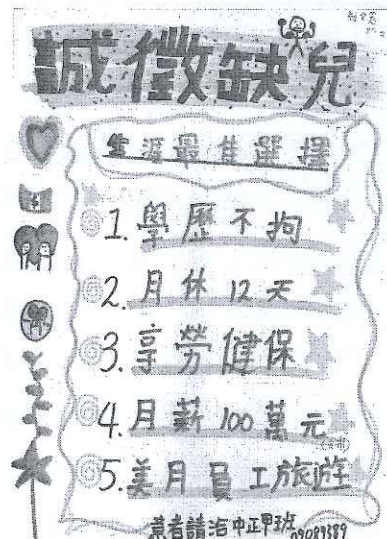 誠徵缺兒
生涯最佳選擇
1.學歷不拘
2.月休12天
3.享勞健保
4.月薪100萬元
5.美月員工旅遊
意者請洽中正甲班
09089389